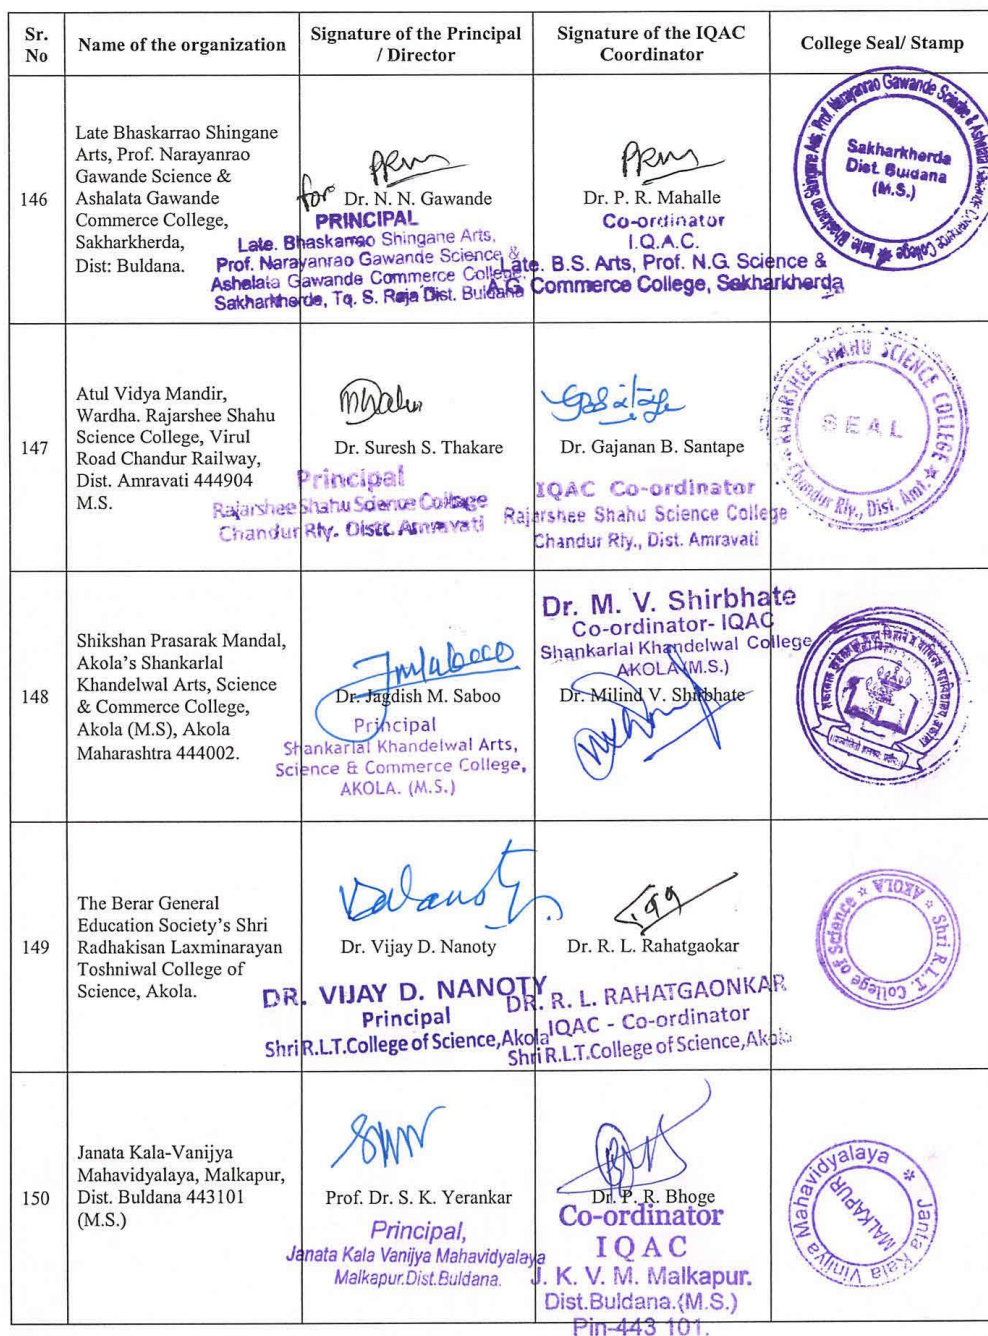 Sr.
No
Name of the organization
Signature of the Principal
/ Director
Signature of the IQAC
Coordinator
College Seal/ Stamp
146
Late Bhaskarrao Shingane
Arts, Prof. Narayanrao
Gawande Science &
Ashalata Gawande
Commerce College,
Sakharkherda,
Dist: Buldana.
for
Dr. N. N. Gawande
PRINCIPAL
Late. Bhaskarrao Shingane Arts,
Prof. Narayanrao Gawande Science &
Ashalata Gawande Commerce College,
Sakharkherda, Tq. S. Raja Dist. Buldana
Dr. P. R. Mahalle
Co-ordinator
I.Q.A.C.
Late. B.S. Arts, Prof. N.G. Science &
A.G. Commerce College, Sakharkherda
Late. Bhaskarrao Shingane Arts, Prof. Narayanrao Gawande Science & Ashalata Gawande Commerce College
Sakharkherda
Dist. Buldana
(M.S.)
147
Atul Vidya Mandir,
Wardha. Rajarshee Shahu
Science College, Virul
Road Chandur Railway,
Dist. Amravati 444904
M.S.
Dr. Suresh S. Thakare
Principal
Rajarshee Shahu Science College
Chandur Rly. Distt. Amravati
Dr. Gajanan B. Santape
IQAC Co-ordinator
Rajarshee Shahu Science College
Chandur Rly., Dist. Amravati
RAJARSHEE SHAHU SCIENCE COLLEGE
SEAL
Chandur Rly., Dist. Amt.
148
Shikshan Prasarak Mandal,
Akola's Shankarlal
Khandelwal Arts, Science
& Commerce College,
Akola (M.S), Akola
Maharashtra 444002.
Dr. Jagdish M. Saboo
Principal
Shankarlal Khandelwal Arts,
Science & Commerce College,
AKOLA. (M.S.)
Dr. M. V. Shirbhate
Co-ordinator- IQAC
Shankarlal Khandelwal College
AKOLA (M.S.)
Dr. Milind V. Shirbhate
149
The Berar General
Education Society's Shri
Radhakisan Laxminarayan
Toshniwal College of
Science, Akola.
Dr. Vijay D. Nanoty
DR. VIJAY D. NANOTY
Principal
Shri R.L.T.College of Science,Akola
Dr. R. L. Rahatgaokar
DR. R. L. RAHATGAONKAR
IQAC - Co-ordinator
Shri R.L.T.College of Science,Akola
Shri R.L.T. College of Science * AKOLA *
150
Janata Kala-Vanijya
Mahavidyalaya, Malkapur,
Dist. Buldana 443101
(M.S.)
Prof. Dr. S. K. Yerankar
Principal,
Janata Kala Vanijya Mahavidyalaya
Malkapur.Dist.Buldana.
Dr. P. R. Bhoge
Co-ordinator
IQAC
J. K. V. M. Malkapur.
Dist.Buldana.(M.S.)
Pin-443 101.
Janta Kala Vinijya Mahavidyalaya *
MALKAPUR